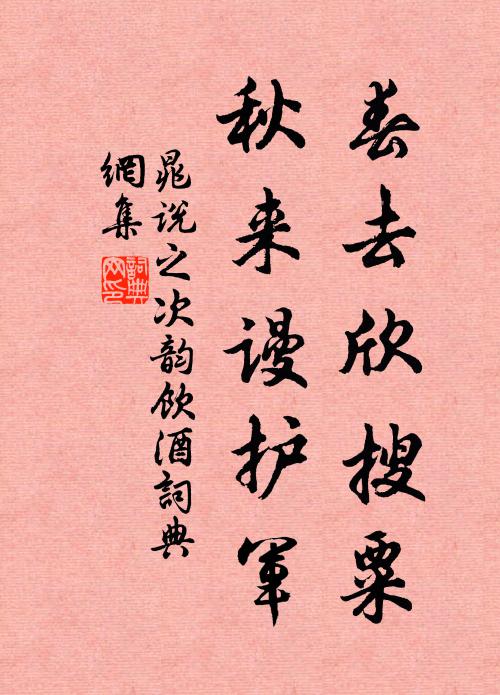 春去欣搜粟
秋来谩护军
晁说之次韵饮酒詞典
網集
詞典網印